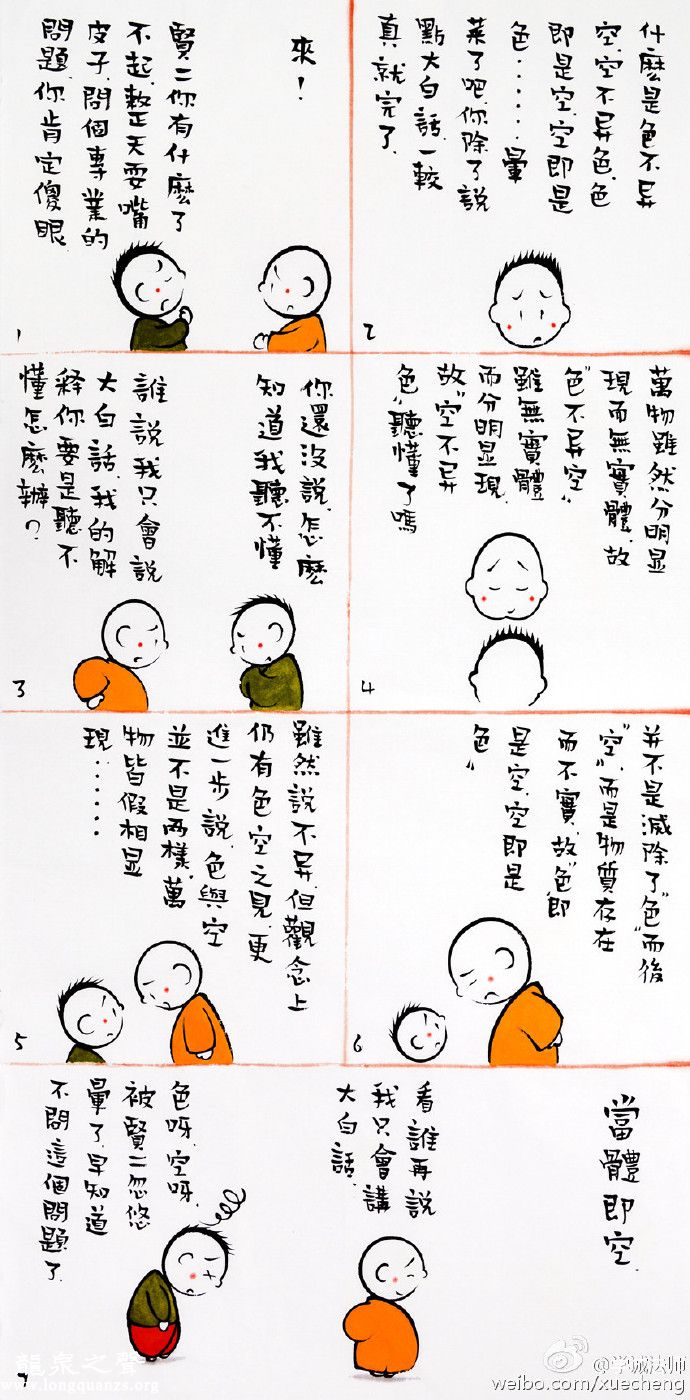 來！
賢二你有什麼了
不起，整天耍嘴
皮子，問個專業的
問題，你肯定傻眼
1
什麼是色不异
空，空不异色，色
即是空，空即是
色……暈
菜了吧，你除了說
點大白話，一較
真就完了。
2
你還没說，怎麼
知道我聽不懂
誰說我只會說
大白話，我的解
释你要是聽不
懂怎麼辦？
3
萬物雖然分明显
現而無實體，故
“色不异空”
雖無實體
而分明显現，
故“空不异
色”聽懂了嗎
4
雖然說不异，但觀念上
仍有色空之見，更
進一步說，色與空
並不是两樣，萬
物皆假相显
現……
5
并不是減除了“色”而後
“空”，而是物質存在
而不實，故“色”即
是空，空即是
色”
6
當體即空。
看誰再說
我只會講
大白話。
色呀，空呀，
被賢二忽悠
暈了，早知道
不問這個問題了。
7
龍泉之聲
www.longquanzs.org
@学诚法师
weibo.com/xuecheng